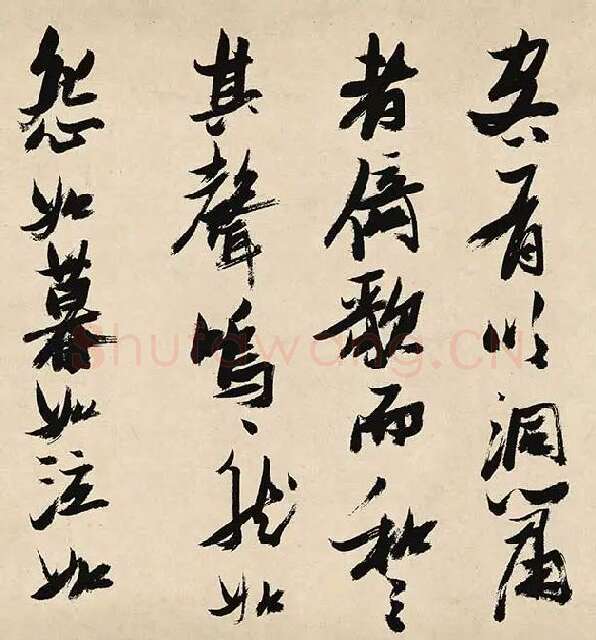 客有吹洞簫
者倚歌而和之
其聲嗚〻然如
怨如慕如泣如
Shufawang.CN